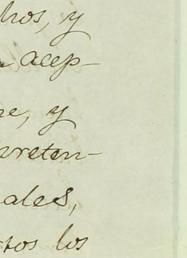 hos, y
acep-
e, y
preten-
ales,
tos los